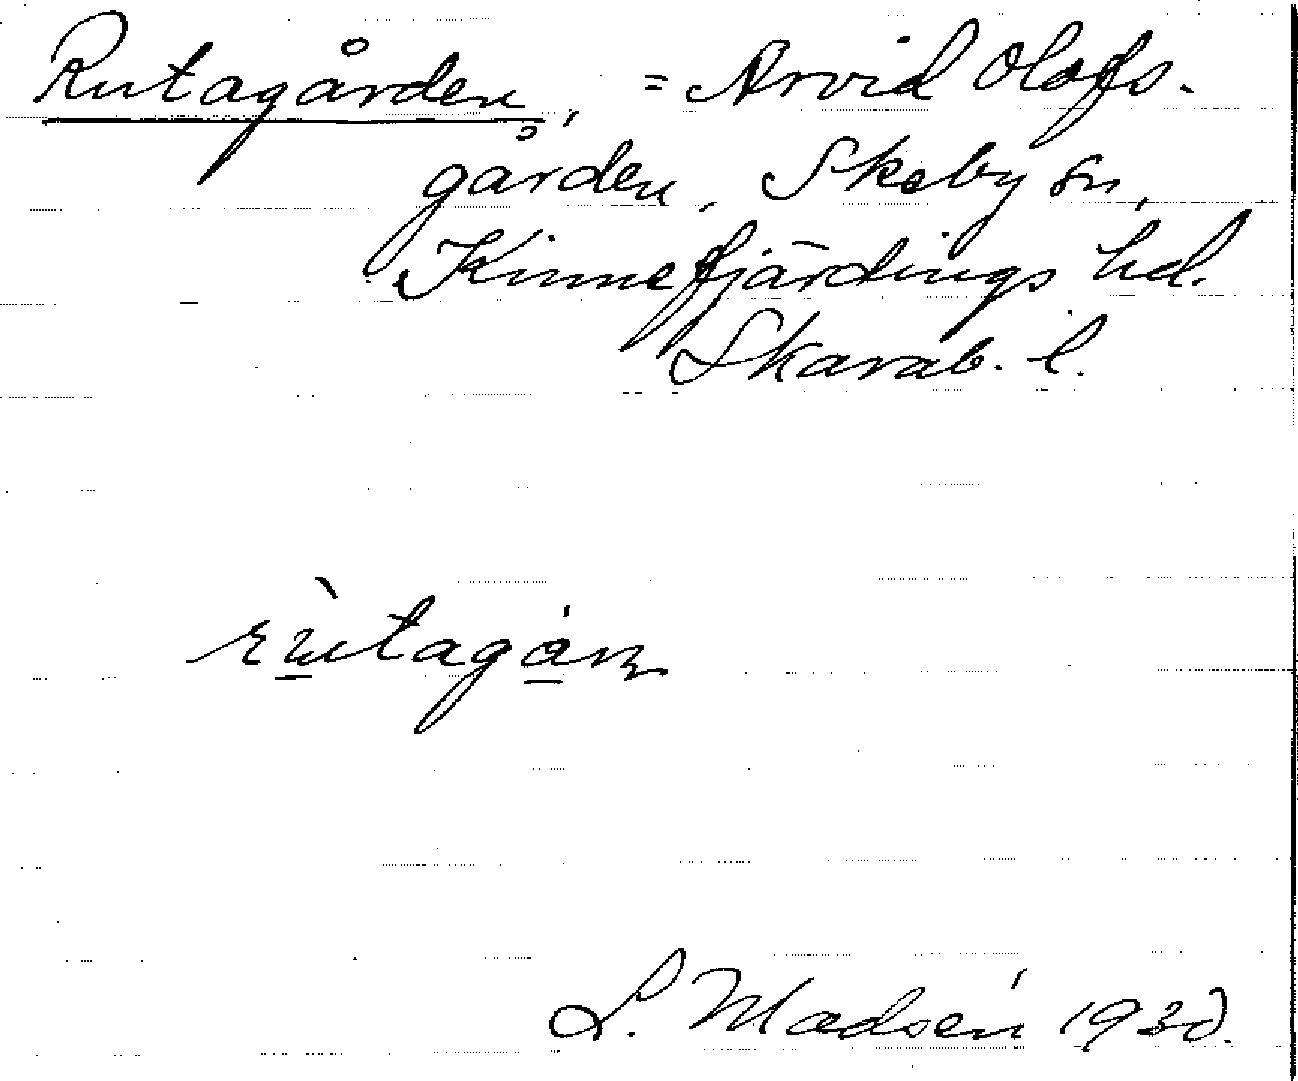 Rutagården, = Arvid Olofs-
gården, Skeby sn,
Kinnefjärdings hd.
Skarab. l.
rùtagán
L. Madsén 1930.